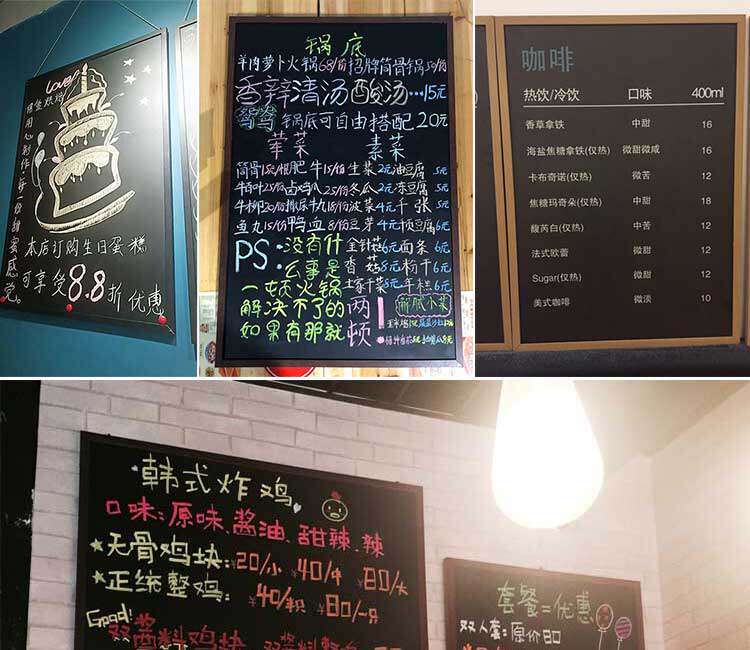 Love
用心制作·每一份甜蜜感觉
本店订购生日蛋糕
可享受8.8折优惠
锅底
羊肉萝卜火锅68/份招牌筒骨锅58/份
香辣清汤酸汤…15元
鸳鸯锅底可自由搭配20元
荤菜 素菜
肥牛15/份生菜2元油豆腐5元
牛百叶25/份 冬瓜2元冻豆腐5元
牛柳20/份 菠菜4元千张5元
鱼丸15/份鸭血8/份豆芽4元 豆腐6元
PS:没有什 金针菇6元面条6元
么事是 香菇8元粉干6元
一顿火锅 年糕6元
解决不了的两
如果有那就顿!
咖啡
热饮/冷饮 口味 400ml
香草拿铁 中甜 16
海盐焦糖拿铁(仅热) 微甜微咸 16
卡布奇诺(仅热) 微苦 12
焦糖玛奇朵(仅热) 中甜 18
馥芮白(仅热) 中苦 12
法式欧蕾 微甜 12
Sugar(仅热) 微甜 12
美式咖啡 微淡 10
韩式炸鸡
口味:原味、酱油、甜辣、辣
★无骨鸡块:¥20/小 ¥40/中 ¥80/大
★正统整鸡: ¥40/半只 ¥80/一只
Good!
双酱料鸡块
套餐=优惠
双人套:原价80